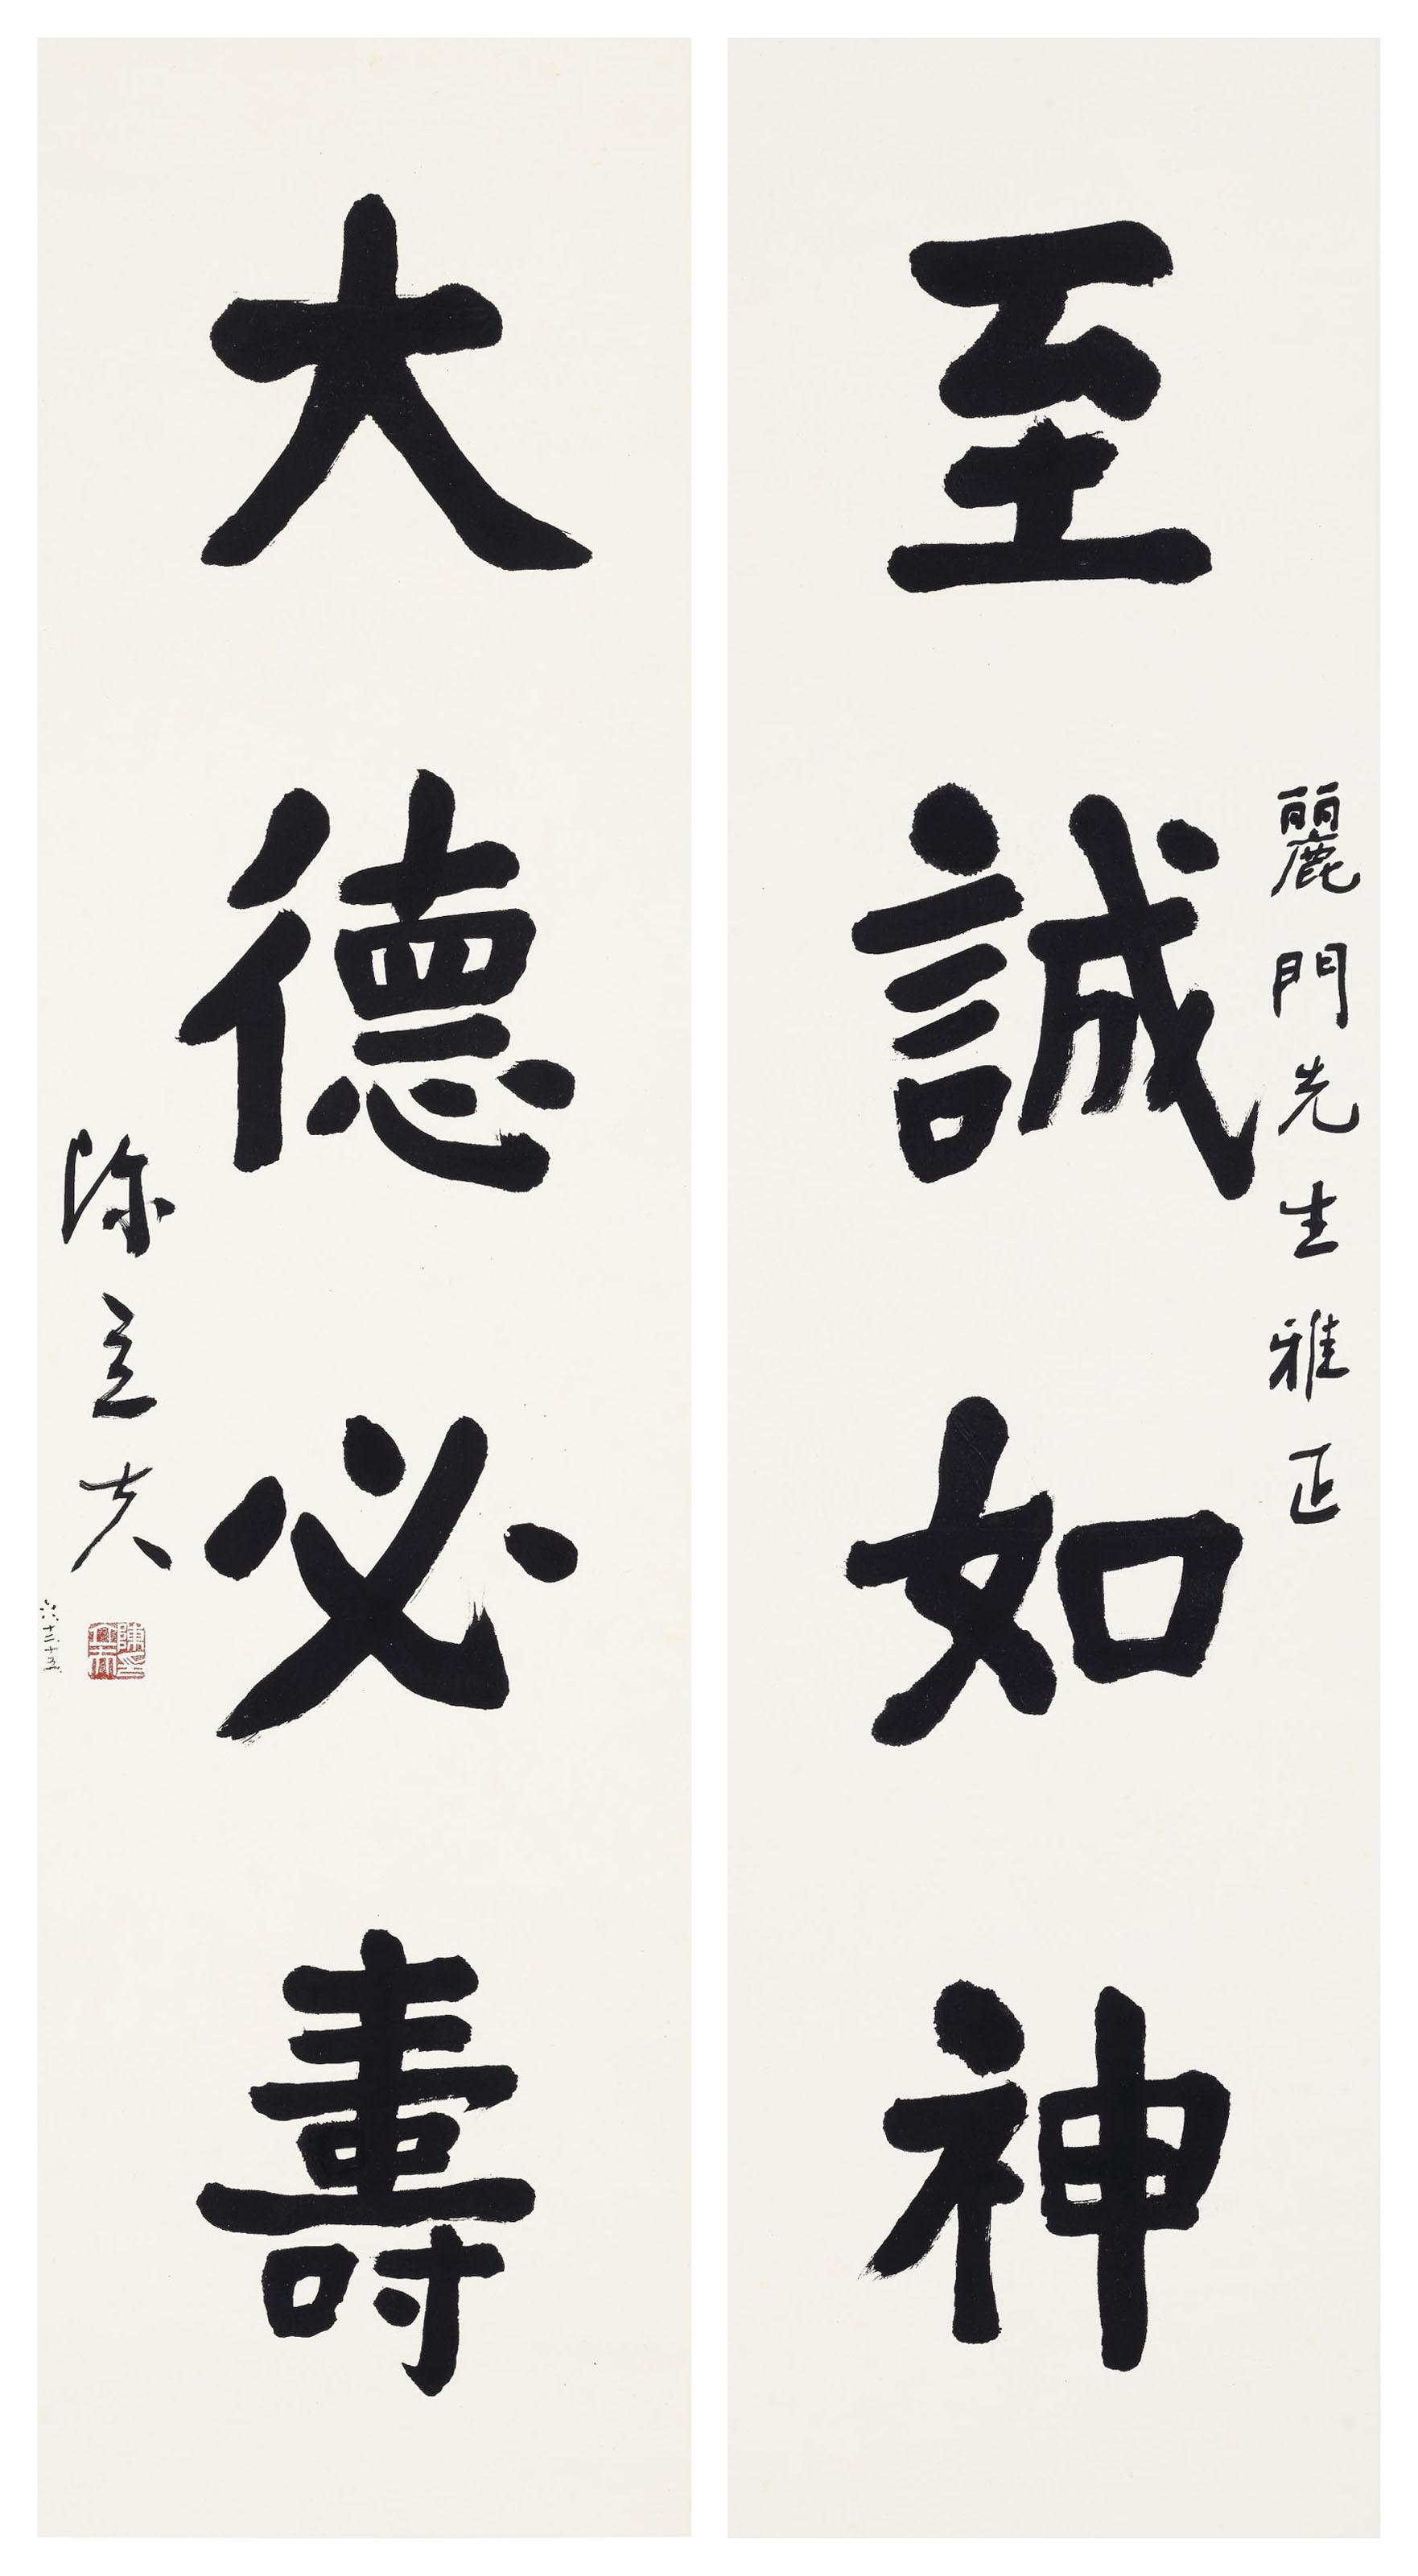 麗門先生雅正
至誠如神
大德必壽
陳立夫
六六、十二、十五、